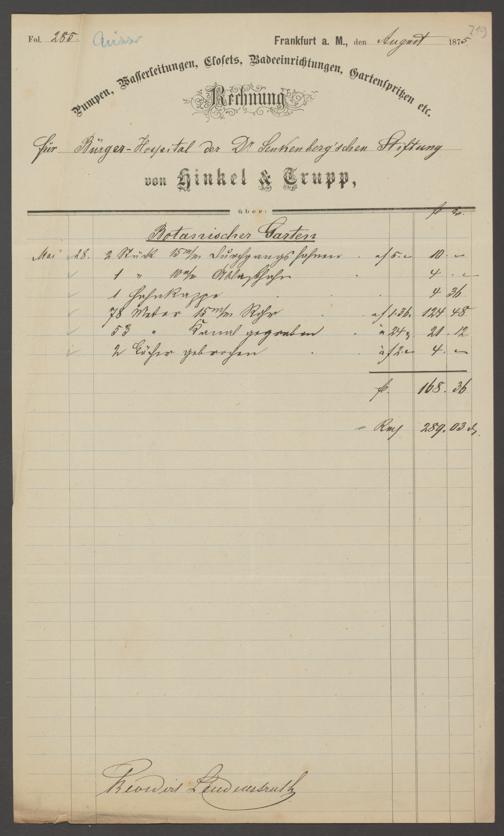 Fol. 285. 219
Frankfurt a. M., den August 1875
Pumpen, Wasserleitungen, Closets, Badeeinrichtungen, Gartenspritzen etc.
Rechnung
für Bürger-Hospital der Dr Senkenberg'schen Stiftung
von Hinkel & Trupp,
über:
Botanischer Garten
Mai 28. 2 Stück 15 m/m Durchgangshahnen a f 5.- 10. -
1 " 10 m/m Ablaßhahn 4. -
1 Hahnkappe 4 36
78 Meter 15 m/m Rohr a f 1.36 124 48
53 " Kanal gegraben a 24 21. 12
2 Löcher gebrochen a f 2.- 4. -
fl. 168. 36
Rm 289. 03
Revidirt